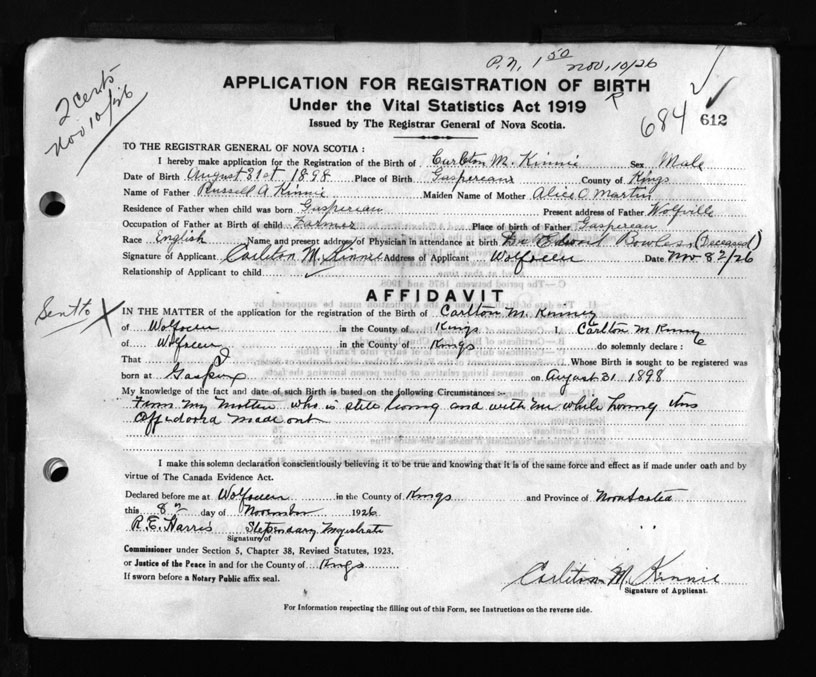 P.N. 1 50 Nov, 10/26
2 Certs
Nov 10/26
APPLICATION FOR REGISTRATION OF BIRTH
Under the Vital Statistics Act 1919
Issued by The Registrar General of Nova Scotia.
684 612
TO THE REGISTRAR GENERAL OF NOVA SCOTIA:
I hereby make application for the Registration of the Birth of Carlton M. Kinnie Sex Male
Date of Birth August 31st 1898 Place of Birth Gaspereau County of Kings
Name of Father Russell A Kinnie Maiden Name of Mother Alice O Martin
Residence of Father when child was born Gaspereau Present address of Father Wolfville
Occupation of Father at Birth of child Farmer Place of birth of Father Gaspereau
Race English Name and present address of Physician in attendance at birth Dr Edward Bowles (Deceased)
Signature of Applicant Carleton M. Kinnie Address of Applicant Wolfvill Date Nov 8th/26
Relationship of Applicant to child
Sent to X
AFFIDAVIT
IN THE MATTER of the application for the registration of the Birth of Carlton M. Kinney
of Wolfvill in the County of Kings I, Carlton M. Kinny
of Wolfvill in the County of Kings do solemnly declare:
That Whose Birth is sought to be registered was
born at on August 31 1898
My knowledge of the fact and date of such Birth is based on the following Circumstances :-
From my Mother who is still living and with me while having this
made out
I make this solemn declaration conscientiously believing it to be true and knowing that it is of the same force and effect as if made under oath and by
virtue of The Canada Evidence Act.
Declared before me at Wolfvill in the County of Kings and Province of Nova Scotia
this 8th day of November 1926
R.E. Harris Stependary Magistrate
Signature of
Commissioner under Section 5, Chapter 38, Revised Statutes, 1923.
or Justice of the Peace in and for the County of Kings
If sworn before a Notary Public affix seal.
Carleton M. Kinnie
Signature of Applicant.
For Information respecting the filling out of this Form, see Instructions on the reverse side.